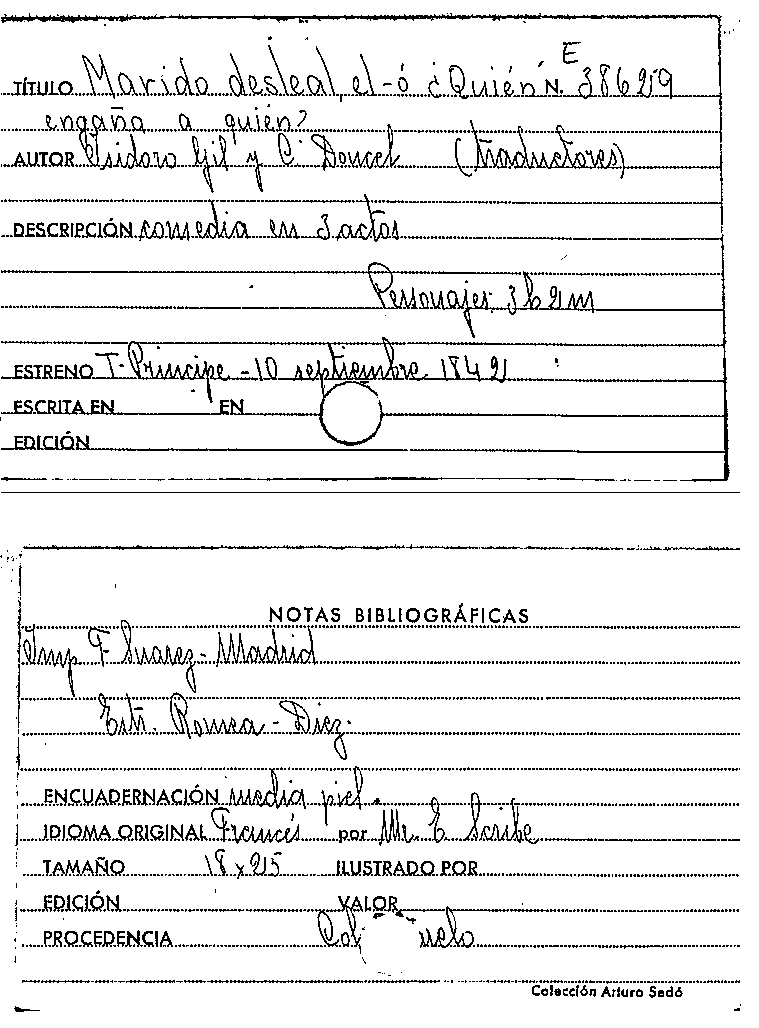 TÍTULO Marido desleal, el-ó ¿Quién N. E 38629
engaña a quién?
AUTOR Isidoro Gil y C. Doucel (traductores)
DESCRIPCIÓN comedia en 3 actos
Personajes 3h 2m
ESTRENO T. Principe - 10 septiembre 1842
ESCRITA EN EN
EDICIÓN
NOTAS BIBLIOGRÁFICAS
Imp F Suarez - Madrid
Estr. Romea - Diez.
ENCUADERNACIÓN media piel.
IDIOMA ORIGINAL Francés por Mr. E Scribe
TAMAÑO 18 x 25 ILUSTRADO POR
EDICIÓN VALOR
PROCEDENCIA
Colección Arturo Sedó